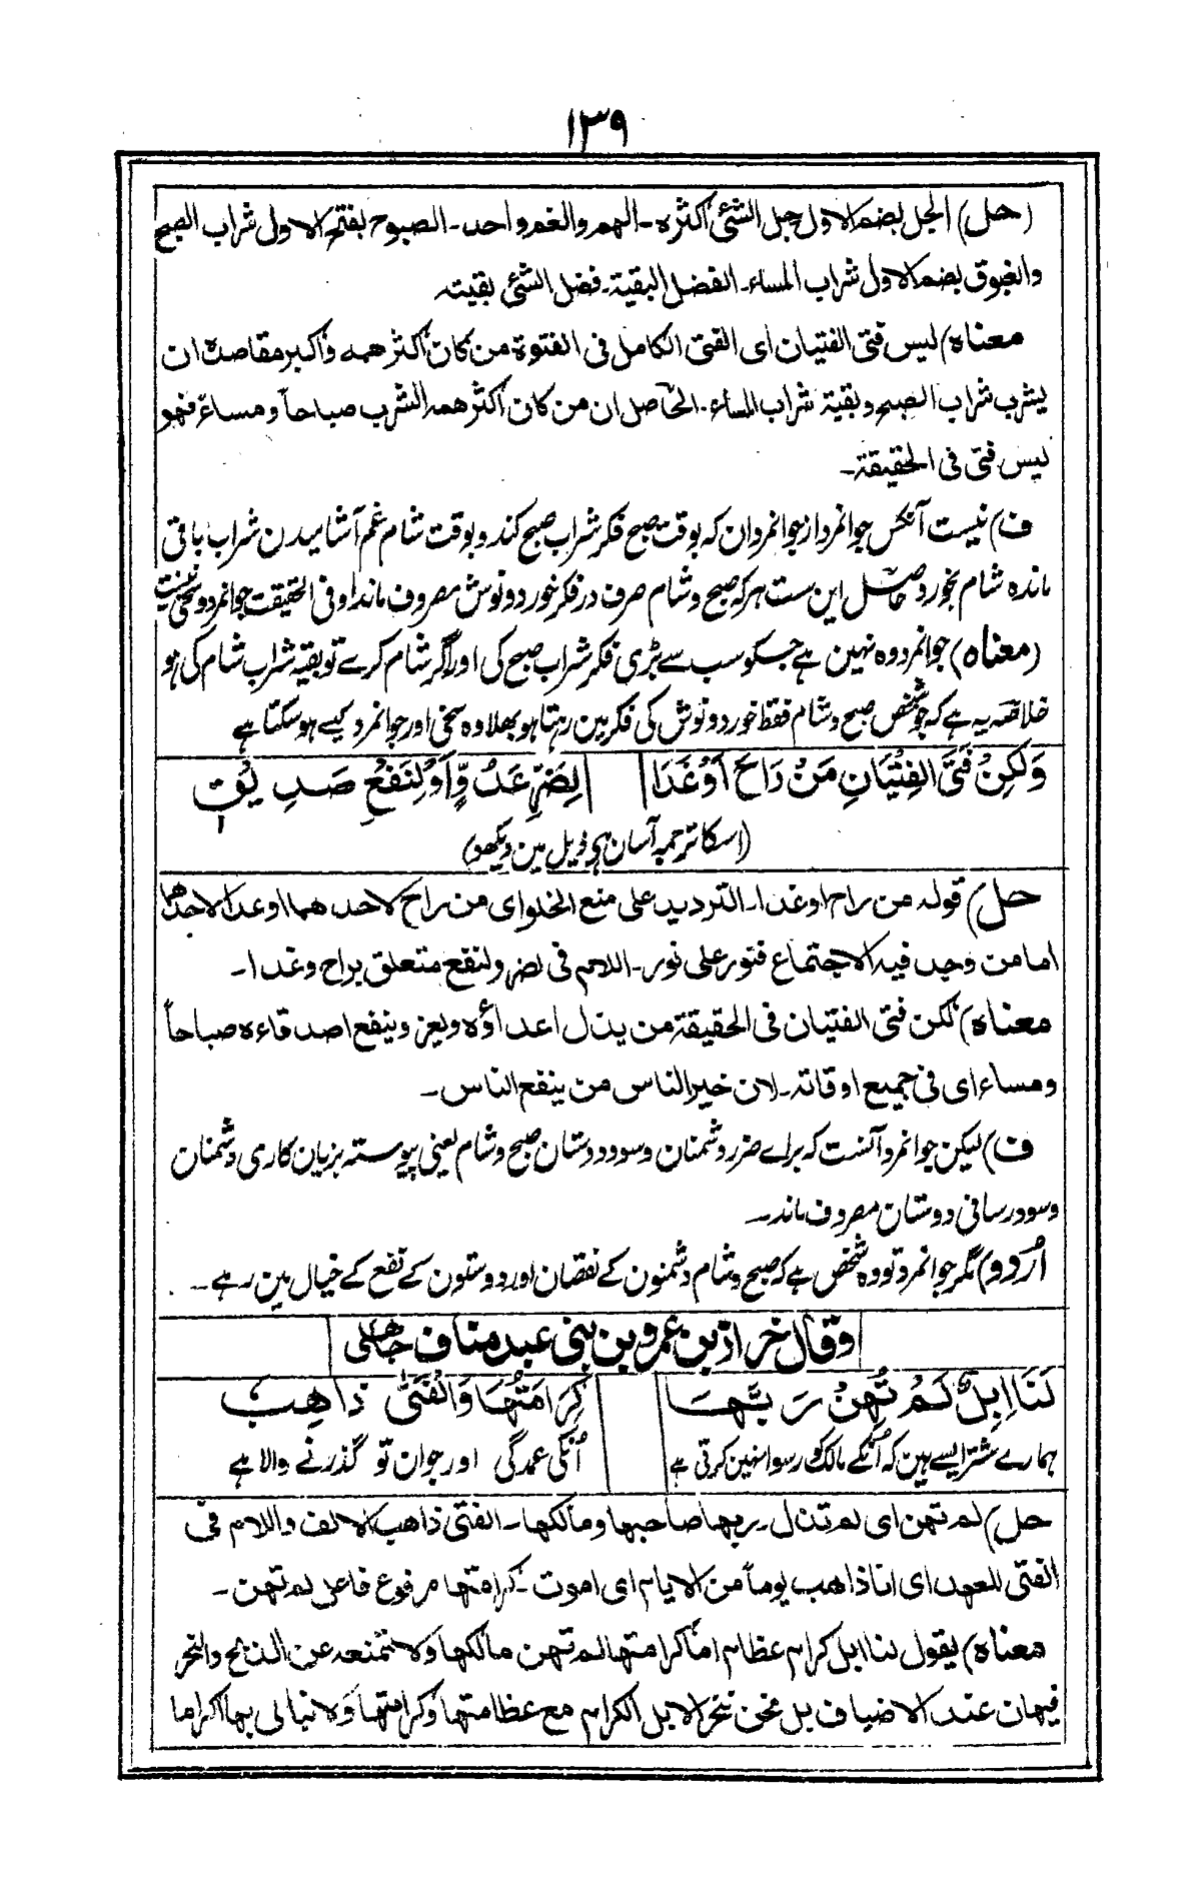 ۱۳۹
(حل) الجل بضم الاول جل الشئی اکثره۔ الهم والغم واحد۔ الصبوح بفتح الاولی شراب الصبح
والغبوق بضم الاول شراب المساء۔ الفضل البقیة۔ فضل الشئی بقیته
معناه) لیس فتی الفتیان ای الفتی الکامل فی الفتوة من کان اکثر همه واکبر مقاصده ان
یشرب شراب الصبح وبقیة شراب المساء۔ الحاصل ان من کان اکثر همه الشرب صباحاً ومساءً فهو
لیس فتی فی الحقیقة۔
ف) نیست آنکس جوانمرد از جوانمردان که بوقت صبح فکر شراب صبح کند و بوقت شام غم آشامیدن شراب باقی
مانده شام بخورد حاصل این ست هرکه صبح و شام صرف در فکر خورد و نوش مصروف ماند او فی الحقیقت جوانمرد و سخی نیست
(معناه) جوانمرد وہ نہین ہے جسکو سب سے بڑی فکر شراب صبح کی اور اگر شام کرے تو بقیہ شراب شام کی ہو
خلاصہ یہ ہے کہ جو شخص صبح و شام فقط خورد و نوش کی فکر مین رہتا ہو بھلا وہ سخی اور جوانمرد کیسے ہو سکتا ہے
وَلٰکِنْ فَتَی الْفِتْیَانِ مَنْ رَاحَ اَوْ غَدَا لِضَرِّ عَدُوٍّ اَوْ لِنَفْعِ صَدِیْقٖ
(اسکا ترجمہ آسان ہی ذیل مین دیکھو)
حل) قوله من راح اوغدا۔ التردید علی منع الخلو ای من راح لاحدهما اوغدا لاحدهما
اما من وجد فیه الاجتماع فنور علی نور۔ اللام فی لضر ولنفع متعلق براح وغدا۔
معناه) لکن فتی الفتیان فی الحقیقة من یذل اعداؤه ویعز وینفع اصدقاءه صباحاً
ومساء ای فی جمیع اوقاته۔ لان خیر الناس من ینفع الناس۔
ف) لیکن جوانمرد آنست که براے ضرر دشمنان وسود دوستان صبح و شام یعنی پیوسته بزیان کاری دشمنان
وسود رسانی دوستان مصروف ماند۔
اُردو) مگر جوانمرد تو وہ شخص ہے کہ صبح و شام دشمنون کے نقصان اور دوستون کے نفع کے خیال مین رہے۔
وقال خراز بن عمرو بن بنی عبد مناف جاهلی
لَنَا اِبِلٌ لَمْ تُهِنْ رَبَّهَا کَرَامَتُهَا وَالْفَتٰی ذَاهِبٗ
ہمارے شتر ایسے ہین کہ اُنکے مالک کو رسوا نہین کرتی ہے اُنکی عمدگی اور جوان تو گذرنے والا ہے
حل) لم تهن ای لم تذل۔ ربها صاحبها ومالکها۔ الفتی ذاهب الالف واللام فی
الفتی للعهد ای انا ذاهب یوماً من الایام ای اموت۔ کرامتها مرفوع فاعل لم تهن۔
معناه) یقول لنا ابل کرام عظام اما کرامتها لم تهن مالکها ولا تمنعه عن الذبح والنحر
فیهان عند الاضیاف بل نحن ننحر الابل الکرام مع عظامتها وکرامتها ولا نبالی بها اکراما